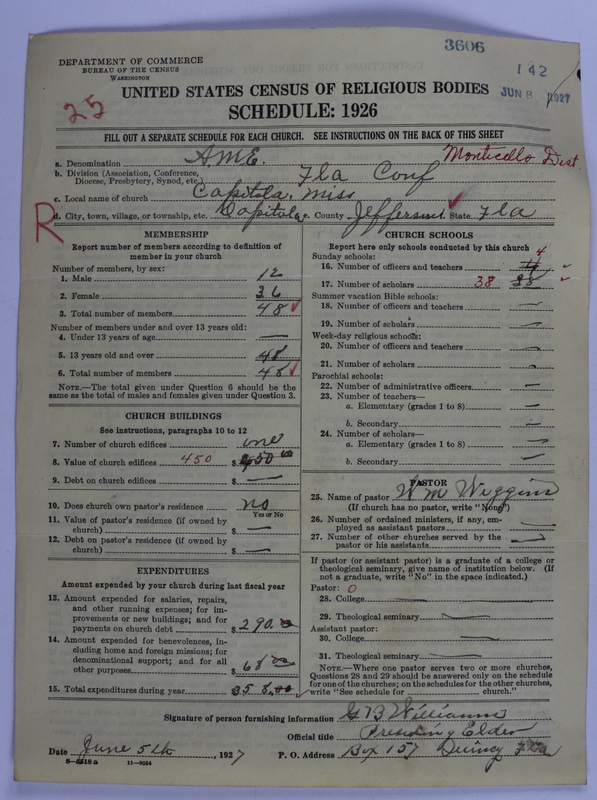 3606
DEPARTMENT OF COMMERCE
BUREAU OF THE CENSUS
WASHINGTON
142
JUN 8 1927
25
UNITED STATES CENSUS OF RELIGIOUS BODIES
SCHEDULE: 1926
FILL OUT A SEPARATE SCHEDULE FOR EACH CHURCH. SEE INSTRUCTIONS ON THE BACK OF THIS SHEET
a. Denomination A.M.E. Monticello Dist.
b. Division (Association, Conference, Diocese, Presbytery, Synod, etc.) Fla Conf
c. Local name of church Capitola. Miss
R
d. City, town, village, or township, etc. Capitola e. County Jefferson State Fla
MEMBERSHIP
Report number of members according to definition of
member in your church
Number of members, by sex:
1. Male 12
2. Female 36
3. Total number of members 48
Number of members under and over 13 years old:
4. Under 13 years of age —
5. 13 years old and over 48
6. Total number of members 48
NOTE.—The total given under Question 6 should be
same as the total of males and females given under Question 3.
CHURCH BUILDINGS
See instructions, paragraphs 10 to 12
7. Number of church edifices one
8. Value of church edifices 450 $ 450 00
9. Debt on church edifices $ —
10. Does church own pastor's residence no
Yes or No
11. Value of pastor's residence (if owned by
church) $ —
12. Debt on pastor's residence (if owned by
church) $ —
EXPENDITURES
Amount expended by your church during last fiscal year
13. Amount expended for salaries, repairs,
and other running expenses; for im-
provements or new buildings; and for
payments on church debt $ 290.00
14. Amount expended for benevolences, in-
cluding home and foreign missions; for
denominational support; and for all
other purposes $ 68 00
15. Total expenditures during year 358.00
CHURCH SCHOOLS
Report here only schools conducted by this church
Sunday schools: 4
16. Number of officers and teachers 4
17. Number of scholars 38 38
Summer vacation Bible schools:
18. Number of officers and teachers —
19. Number of scholars —
Week-day religious schools:
20. Number of officers and teachers —
21. Number of scholars —
Parochial schools:
22. Number of administrative officers —
23. Number of teachers—
a. Elementary (grades 1 to 8) —
b. Secondary —
24. Number of scholars—
a. Elementary (grades 1 to 8) —
b. Secondary —
PASTOR
25. Name of pastor Wm Wiggins
(If church has no pastor, write "None")
26. Number of ordained ministers, if any, em-
ployed as assistant pastors —
27. Number of other churches served by the
pastor or his assistants —
If pastor (or assistant pastor) is a graduate of a college or
theological seminary, give name of institution below. (If
not a graduate, write "No" in the space indicated.)
Pastor: 0
28. College —
29. Theological seminary —
Assistant pastor:
30. College —
31. Theological seminary —
NOTE.—Where one pastor serves two or more churches,
Questions 28 and 29 should be answered only on the schedule
for one of the churches; on the schedules for the other churches,
write "See schedule for church."
Signature of person furnishing information G B Williams
Official title Presiding Elder
Date June 5th, 1927 P. O. Address Box 157 Quincy Fla
8-5518a 11-9064